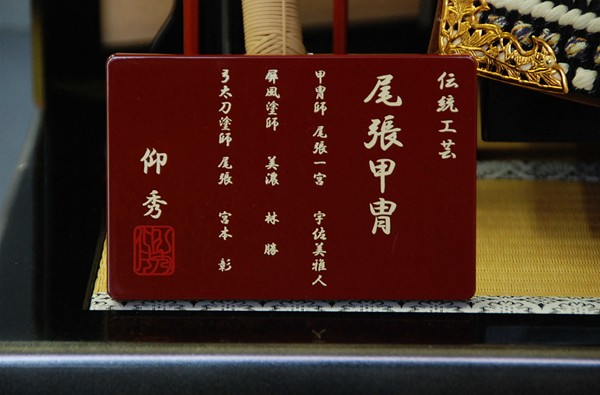 伝統工芸
尾張甲冑
甲冑師 尾張一宮 宇佐美雅人
屏風塗師 美濃 林 勝
弓太刀塗師 尾張 宮本 彰
仰秀